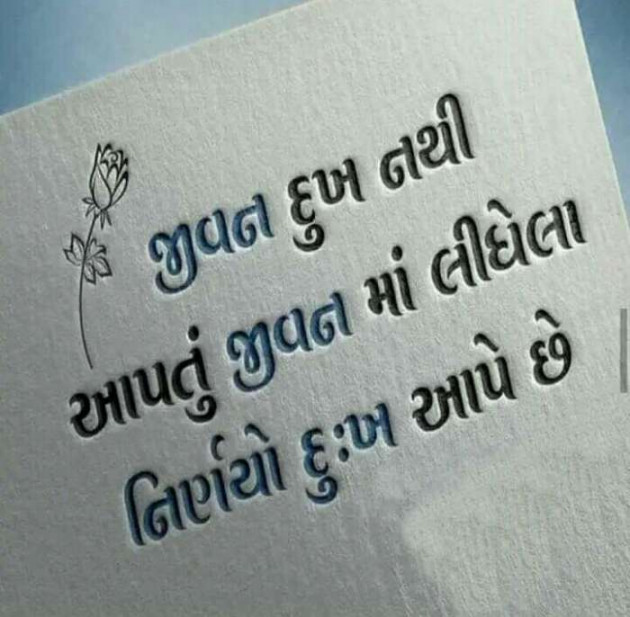 જીવન દુખ નથી
આપતું જીવન માં લીધેલા
નિર્ણયો દુ:ખ આપે છે